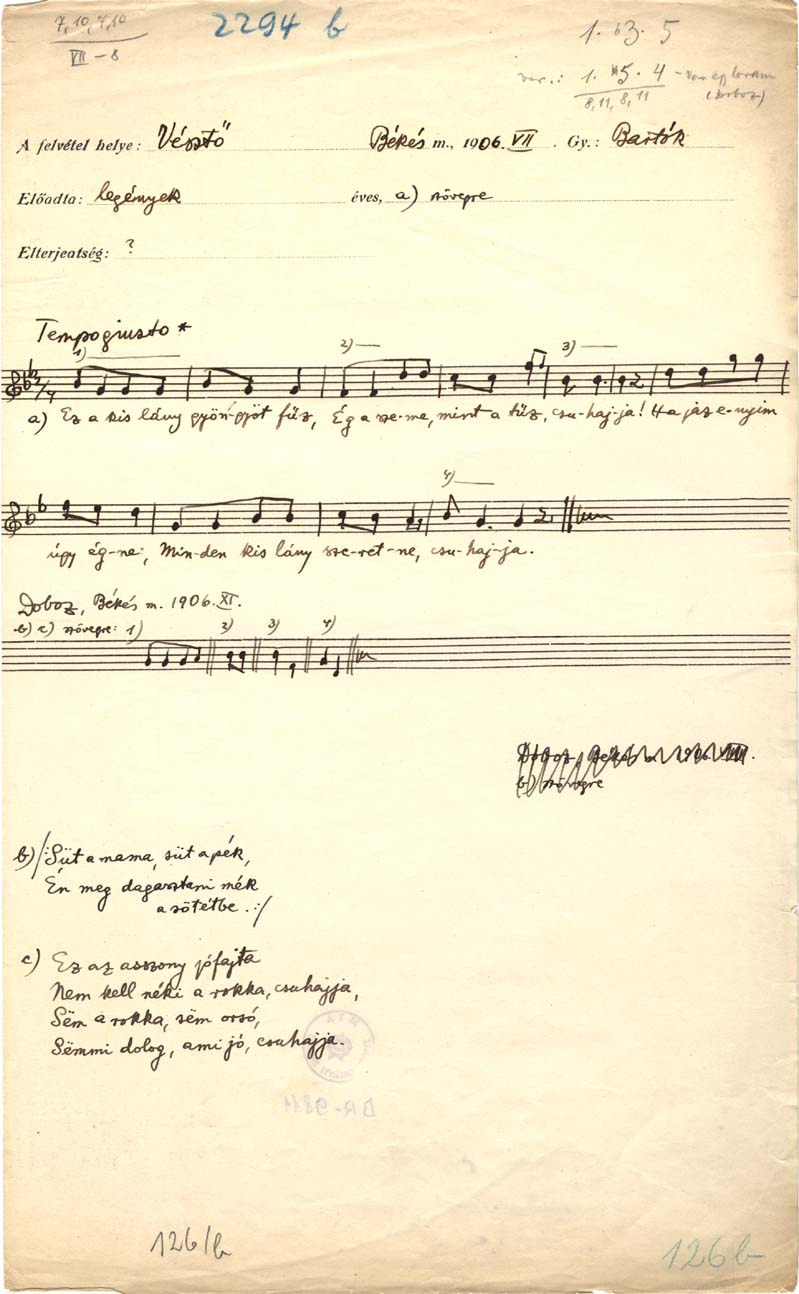 7, 10, 7, 10
VII – 8
2294 b
1. b3. 5
var.: 1. 5. 4 – Van egy lovam
8, 11, 8, 11 (Doboz)
A felvétel helye: Vésztő Békés m., 1906. VII. Gy.: Bartók
Előadta: legények éves, a) szövegre
Elterjedtség: ?
Tempo giusto *
1) 2) 3)
a) Ez a kis lány gyön-gyöt fűz, Ég a sze-me, mint a tűz, csu-haj-ja! Ha jaz e-nyim
4)
úgy ég-ne, Min-den kis lány sze-ret-ne, csu-haj-ja.
Doboz, Békés m. 1906. XI.
b) c) szövegre: 1) 2) 3) 4)
b) szövegre
b) /: Süt a mama, süt a pék,
Én meg dagasztani mék
a sötétbe. :/
c) Ez az asszony jófajta
Nem kell néki a rokka, csuhajja,
Sëm a rokka, sëm orsó,
Sëmmi dolog, ami jó, csuhajja.
BR-9811
126/b
126 b